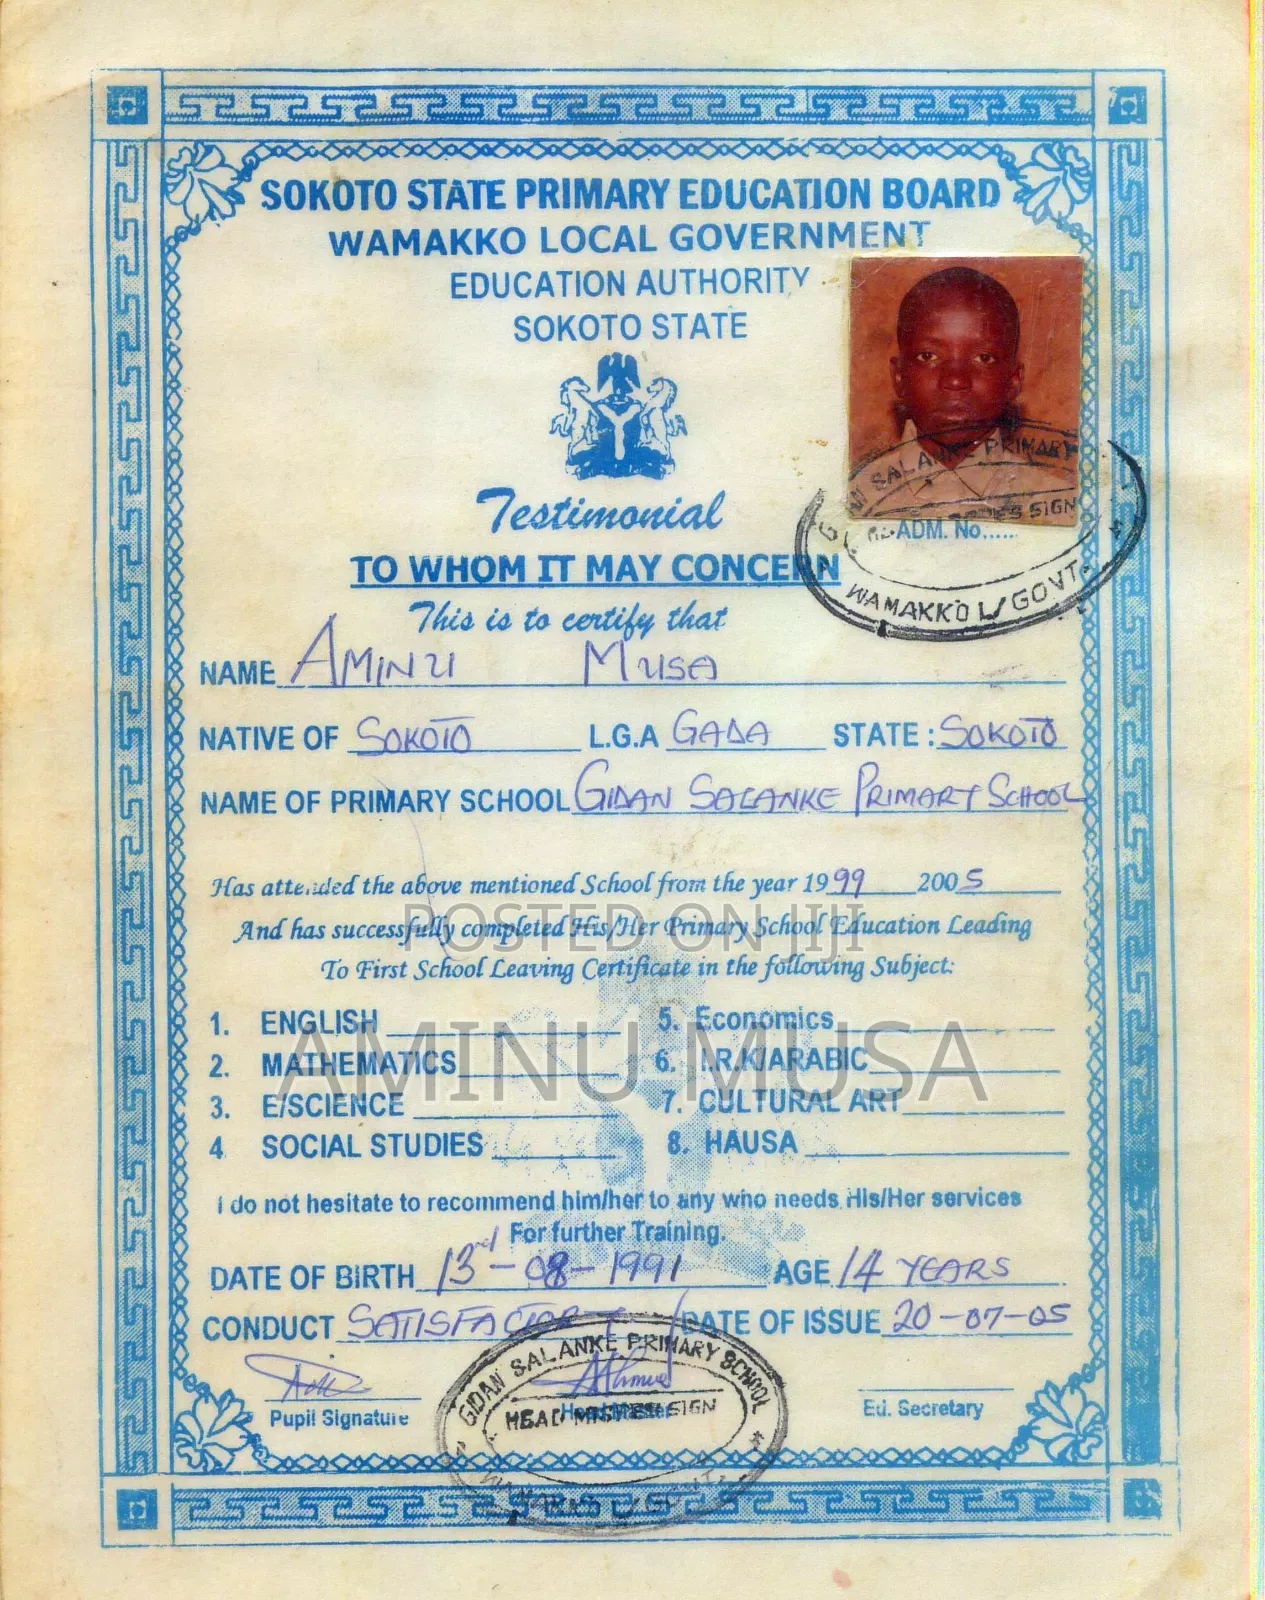 SOKOTO STATE PRIMARY EDUCATION BOARD
WAMAKKO LOCAL GOVERNMENT
EDUCATION AUTHORITY
SOKOTO STATE
Testimonial
SALANKE PRIMARY
SIGN
ADM. No......
WAMAKKO L/GOVT.
TO WHOM IT MAY CONCERN
This is to certify that
NAME AMINU MUSA
NATIVE OF SOKOTO L.G.A GADA STATE : SOKOTO
NAME OF PRIMARY SCHOOL GIDAN SALANKE PRIMARY SCHOOL
Has attended the above mentioned School from the year 1999 2005
POSTED ON JIJI
And has successfully completed His/Her Primary School Education Leading
To First School Leaving Certificate in the following Subject:
AMINU MUSA
1. ENGLISH 5. Economics
2. MATHEMATICS 6. I.R.K/ARABIC
3. E/SCIENCE 7. CULTURAL ART
4 SOCIAL STUDIES 8. HAUSA
I do not hesitate to recommend him/her to any who needs His/Her services
For further Training.
DATE OF BIRTH 13rd-08-1991 AGE 14 YEARS
CONDUCT SATISFACTORY DATE OF ISSUE 20-07-05
GIDAN SALANKE PRIMARY SCHOOL
HEAD SIGN
Pupil Signature Ed. Secretary